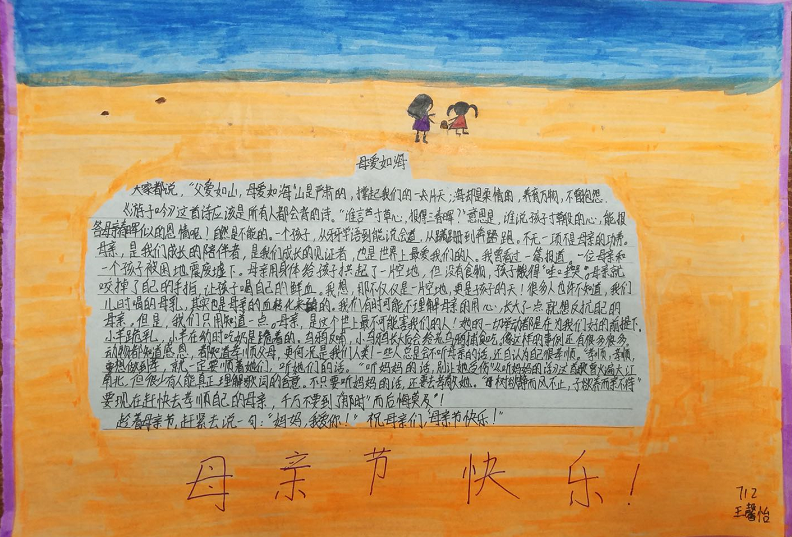 母爱如海
大家都说，“父爱如山，母爱如海”山是严肃的，撑起我们的一片天；海却是柔情的，养育万物，不留包怨．
《游子吟》这首诗应该是所有人都会背的诗。“谁言寸草心，报得三春晖？”意思是，谁说孩子寸草般的心，能报
答母亲春晖似的恩情呢！自然是不能的。一个孩子，从牙牙学语到能说会道，从蹒跚到奔跑，不无一项不是母亲的功劳。
母亲，是我们成长的陪伴者，是我们成长的见证者，也是世界上最爱我们的人。我曾看过一篇报道，一位母亲和
一个孩子被困地震废墟下。母亲用身体给孩子拱起了一片空地，但没有食物，孩子饿得哇哇哭。母亲就
咬掉了自己的手指，让孩子喝自己的鲜血。我想，那不仅仅是一片空地，更是孩子的天！很多人也许不知道，我们
儿时喝的母乳，其实也是母亲的血转化来的。我们有时可能不理解母亲的用心，长大了一点就想反抗自己的
母亲。但是，我们只用知道一点。母亲，是这个世上最不可能害我们的人！她的一切举动都是在为我们好的前提下．
小羊跪乳，小羊在幼时吃奶是跪着的，乌鸦反哺，小乌鸦长大后会给老乌鸦捕食吃。像这样的事例还有很多很多
动物都知道感恩，都知道孝顺父母，更何况是我们人类！一些人总是会不听母亲的话，还自认为自己很孝顺。“孝顺，孝顺，
要想做到孝，就一定要顺着她们，听她们的话。“听妈妈的话，别让她受伤”《听妈妈的话》这首歌曾火遍大江
南北，但很少有人能真正理解歌词的含意。不只要听妈妈的话，还要去孝敬她。“树欲静而风不止，子欲养而亲不待”
要现在赶快去孝顺自己的母亲，千万不要到了那时“而后悔莫及”！
趁着母亲节，赶紧去说一句：“妈妈，我爱你！”祝母亲们，“母亲节快乐！”
母亲节快乐！
712
王馨怡